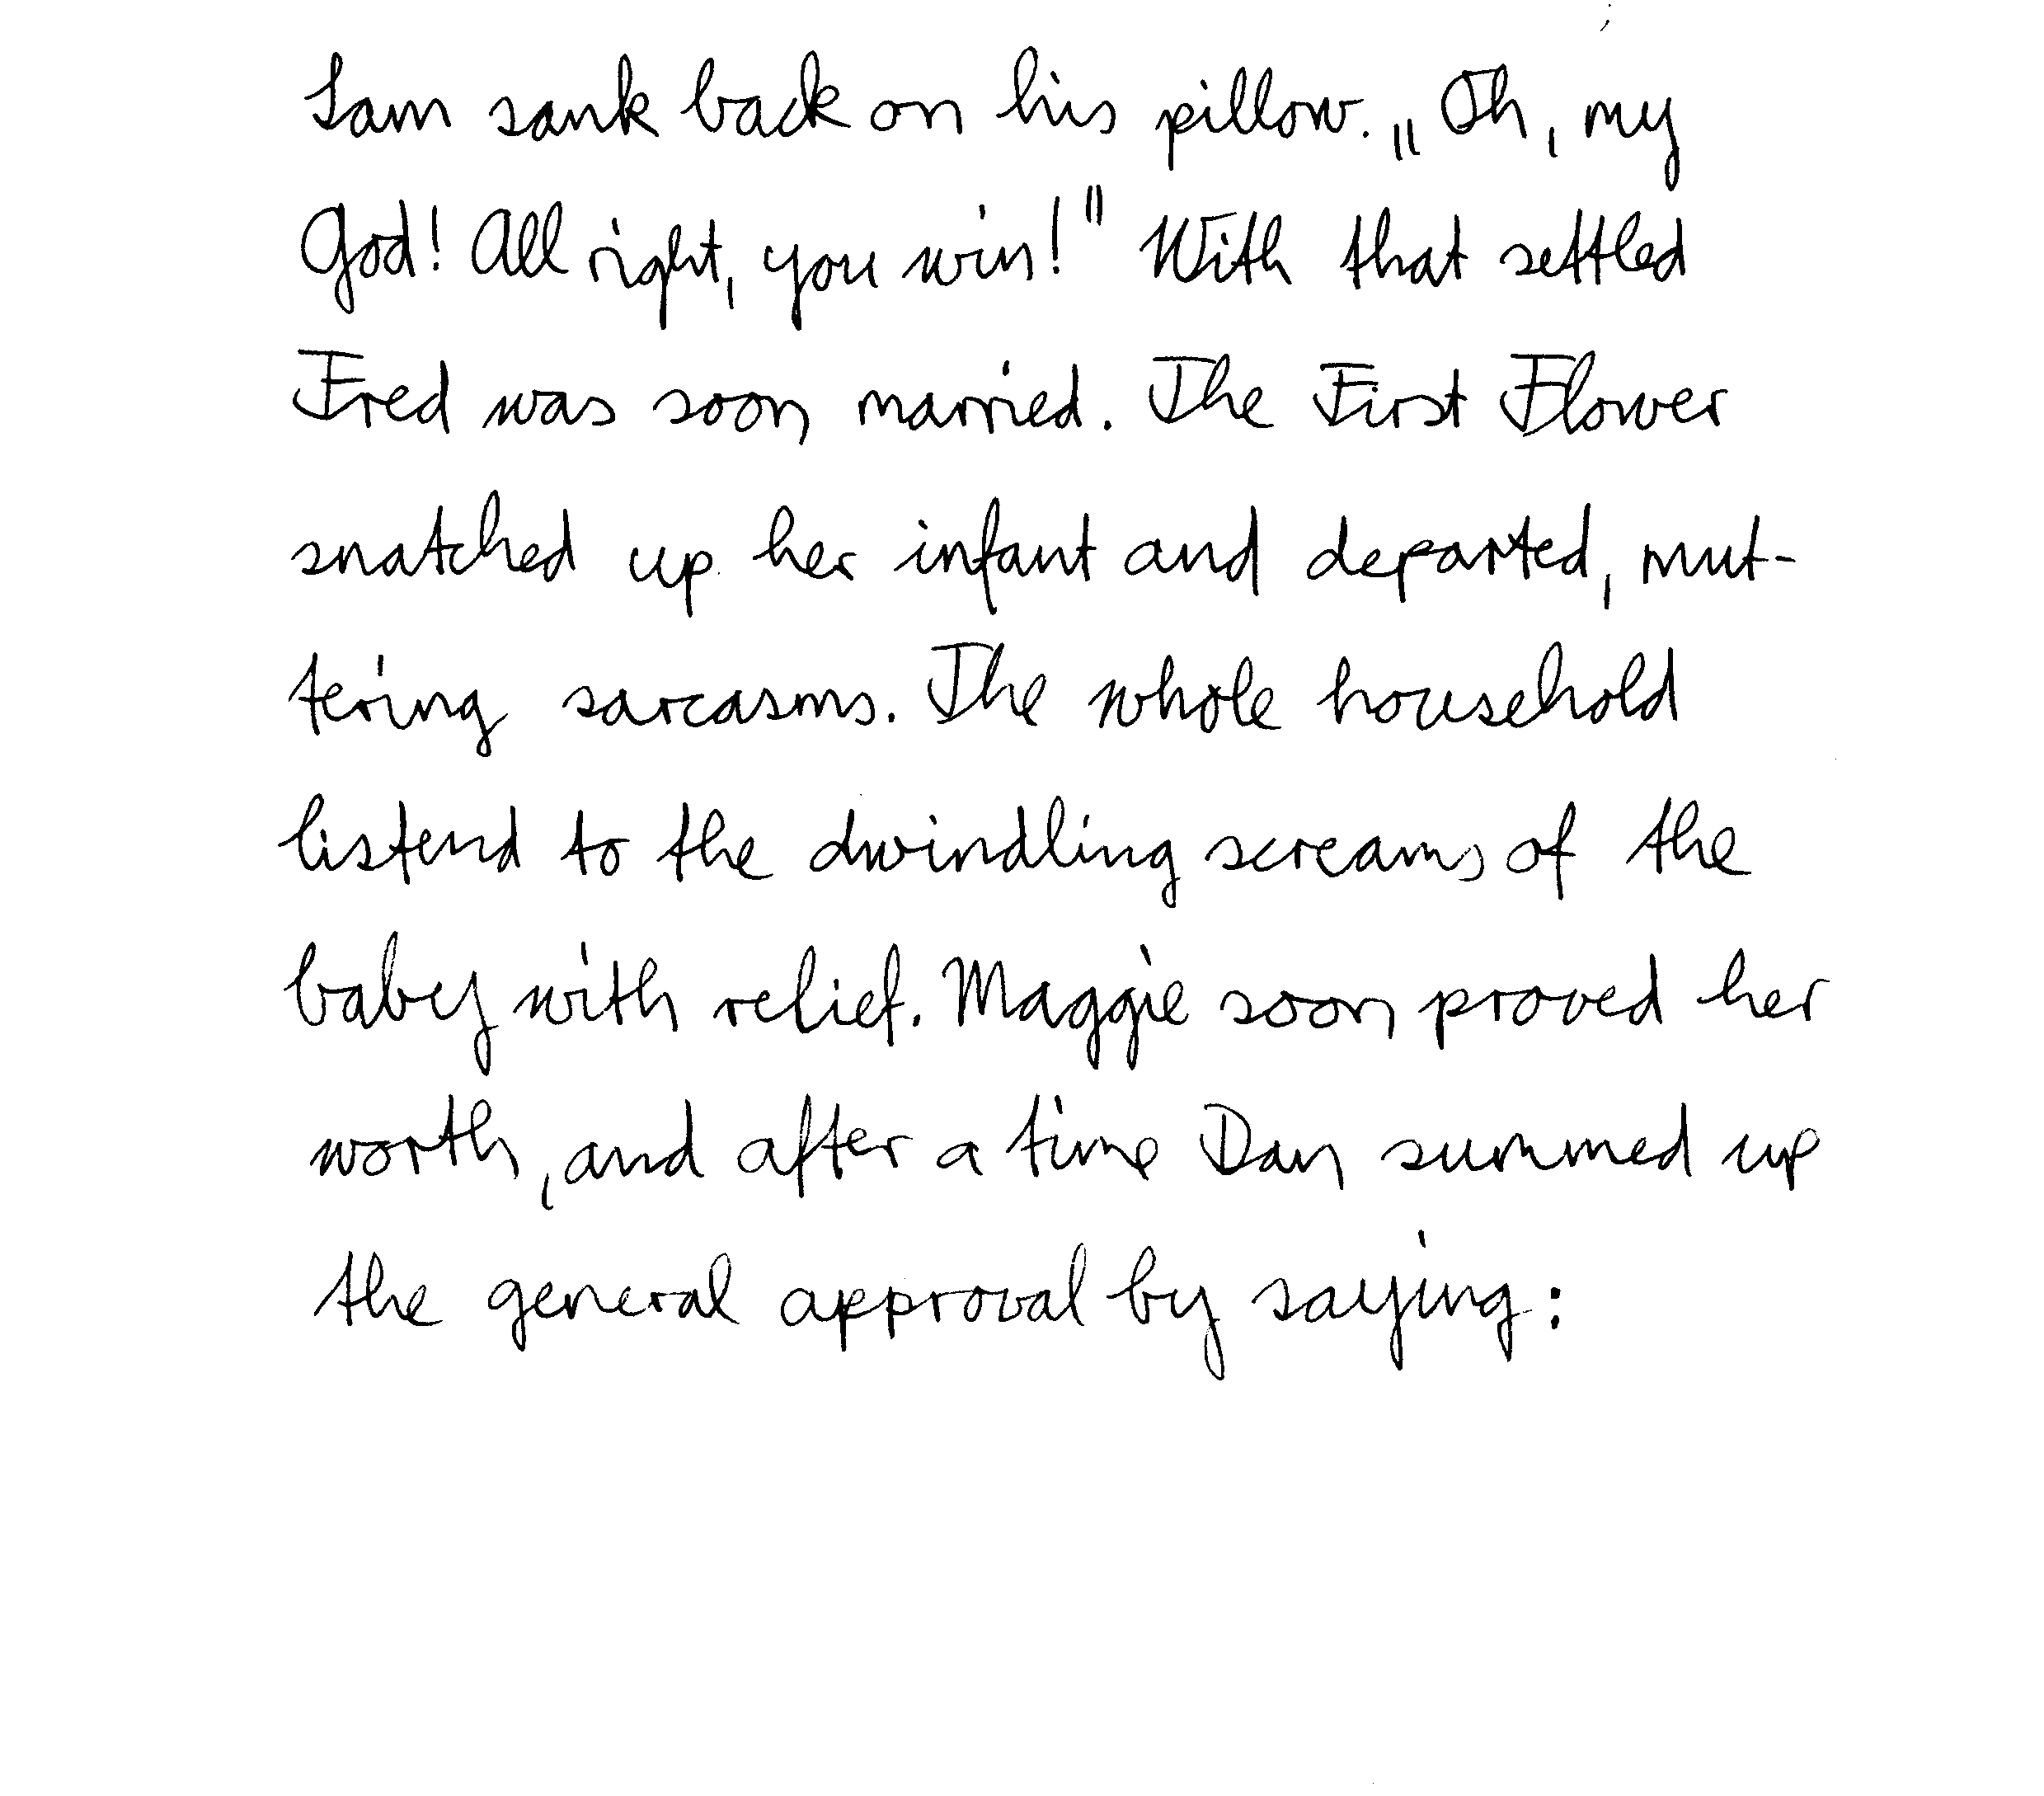 Sam sank back on his pillow. „Oh, my
God! All right, you win!" With that settled
Fred was soon married. The First Flower
snatched up her infant and departed, mut-
tering sarcasms. The whole household
listend to the dwindling screams of the
baby with relief. Maggie soon proved her
worth, and after a time Dan summed up
the general approval by saying: